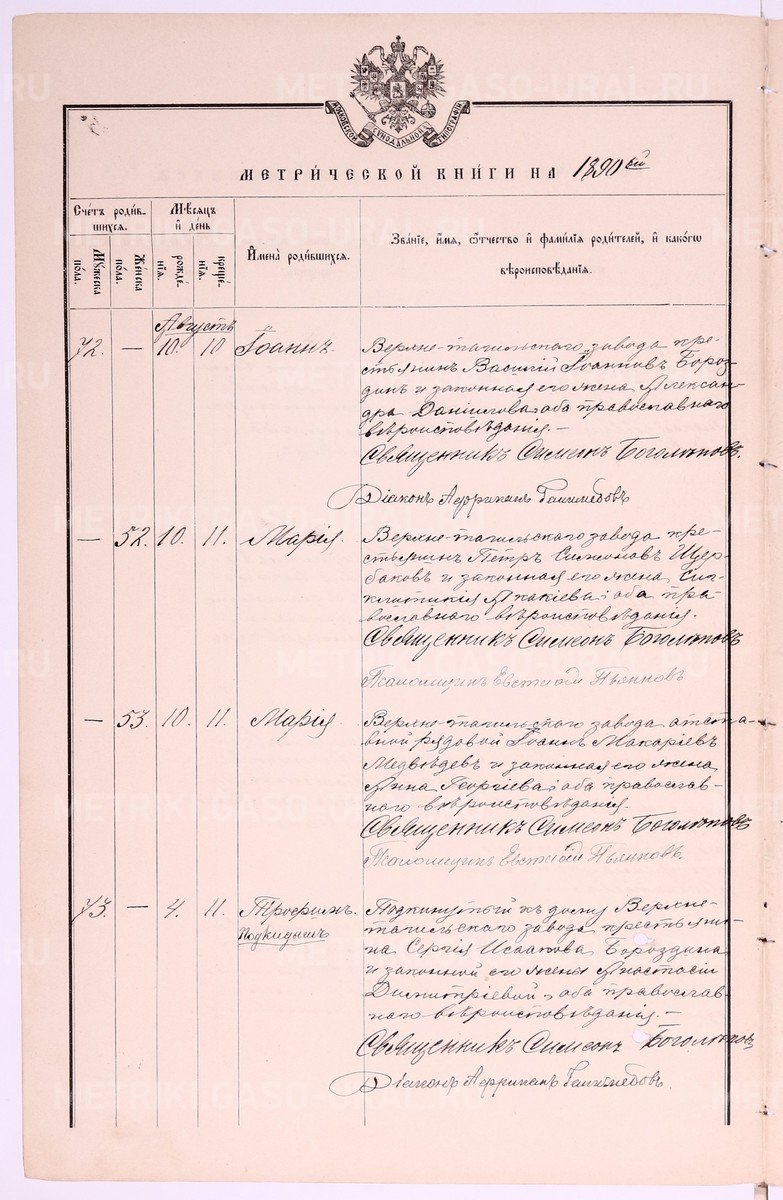 МОСКОВСКОЙ СѴНОДАЛЬНОЙ ТИПОГРАФІИ
МЕТРИ́ЧЕСКОЙ КНИ́ГИ НА 1890 ый
Сче́тъ роди́в-
шихсѧ.
Мѣ́сѧцъ
и҆ де́нь
И҆мена̀ роди́вшихсѧ.
Зва́нїе, и҆́мѧ, ѻ҆́тчество и҆ фами́лїѧ роди́телей, и҆ како́гѡ
вѣроисповѣ́данїѧ.
Мꙋ́жеска по́ла.
Же́нска по́ла.
рожде́нїѧ.
креще́нїѧ.
Августъ
72. — 10. 10 Іоаннъ. Верхне-тагильскаго завода кре-
стьянинъ Василій Іоанновъ Бороз-
динъ и законная его жена Александ-
дра Даніилова, оба православнаго
вѣроисповѣданія.—
Священникъ Симеонъ Боголюбовъ.
Діаконъ Африканъ
— 52. 10. 11. Марія. Верхне-тагильскаго завода кре-
стьянинъ Петръ Симеоновъ Щер-
баковъ и законная его жена Син-
клитикія Акакіева; оба пра-
вославнаго вѣроисповѣданія.
Священникъ Симеонъ Боголюбовъ
Псаломщикъ Евстафій Пьянковъ
— 53. 10. 11. Марія. Верхне-тагильскаго завода отста-
вной рядовой Іоаннъ Макаріевъ
Медвѣдевъ и законная его жена
Анна Георгіева; оба православ-
наго вѣроисповѣданія.
Священникъ Симеонъ Боголюбовъ
Псаломщикъ Евстафій Пьянковъ.
73. — 4. 11. Трофимъ. Подкинутый къ дому Верхне-
подкидышъ тагильскаго завода крестьяни-
на Сергія Исаакова Бороздина
и законной его жены Анастасіи
Димитріевой, оба православ-
наго вѣроисповѣданія.—
Священникъ Симеонъ Боголюбовъ
Діаконъ Африканъ
METRIKI.GASO-URAL.RU